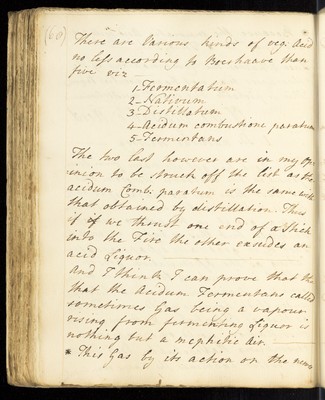 (60)
There are Various kinds of veg: Acid
no less according to Boerhaave than
five viz
1 Fermentatum
2 Nativum
3 Distillatum
4 Acidum combustione paratum
5 Fermentans
The two last however are in my Op-
inion to be struck off the list as the
acidum Comb: paratum is the same with
that obtained by distillation. Thus
if if we thrust one end of a Stick
into the Fire the other exsudes an
acid Liquor.
And I think I can prove that the
that the Acidum Fermentans called
sometimes Gas being a vapour
rising from fermenting Liquor is
nothing but a mephitic Air.
* This Gas by its action on the nerves